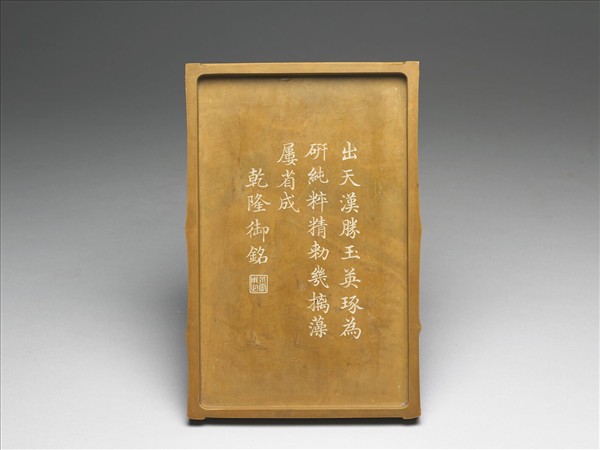 出天漢勝玉英琢為
硏純粹精勅幾摛藻
屢省成
乾隆御銘